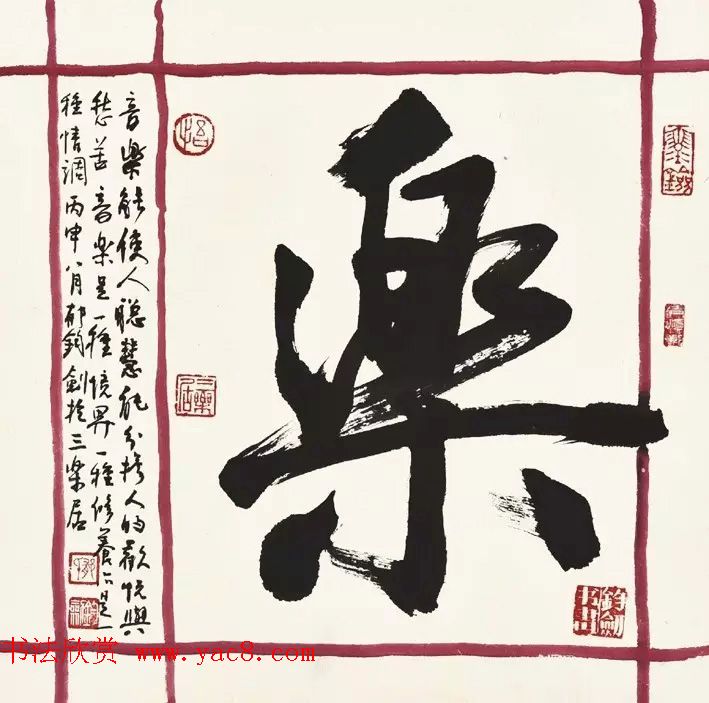 樂
音樂能使人聪慧能分擔人的歡悦與
愁苦音樂是一種境界一種修養亦是一
種情調丙申八月郁鈞劍於三樂居
三樂居
鈞劍书画
书法欣赏 www.yac8.com